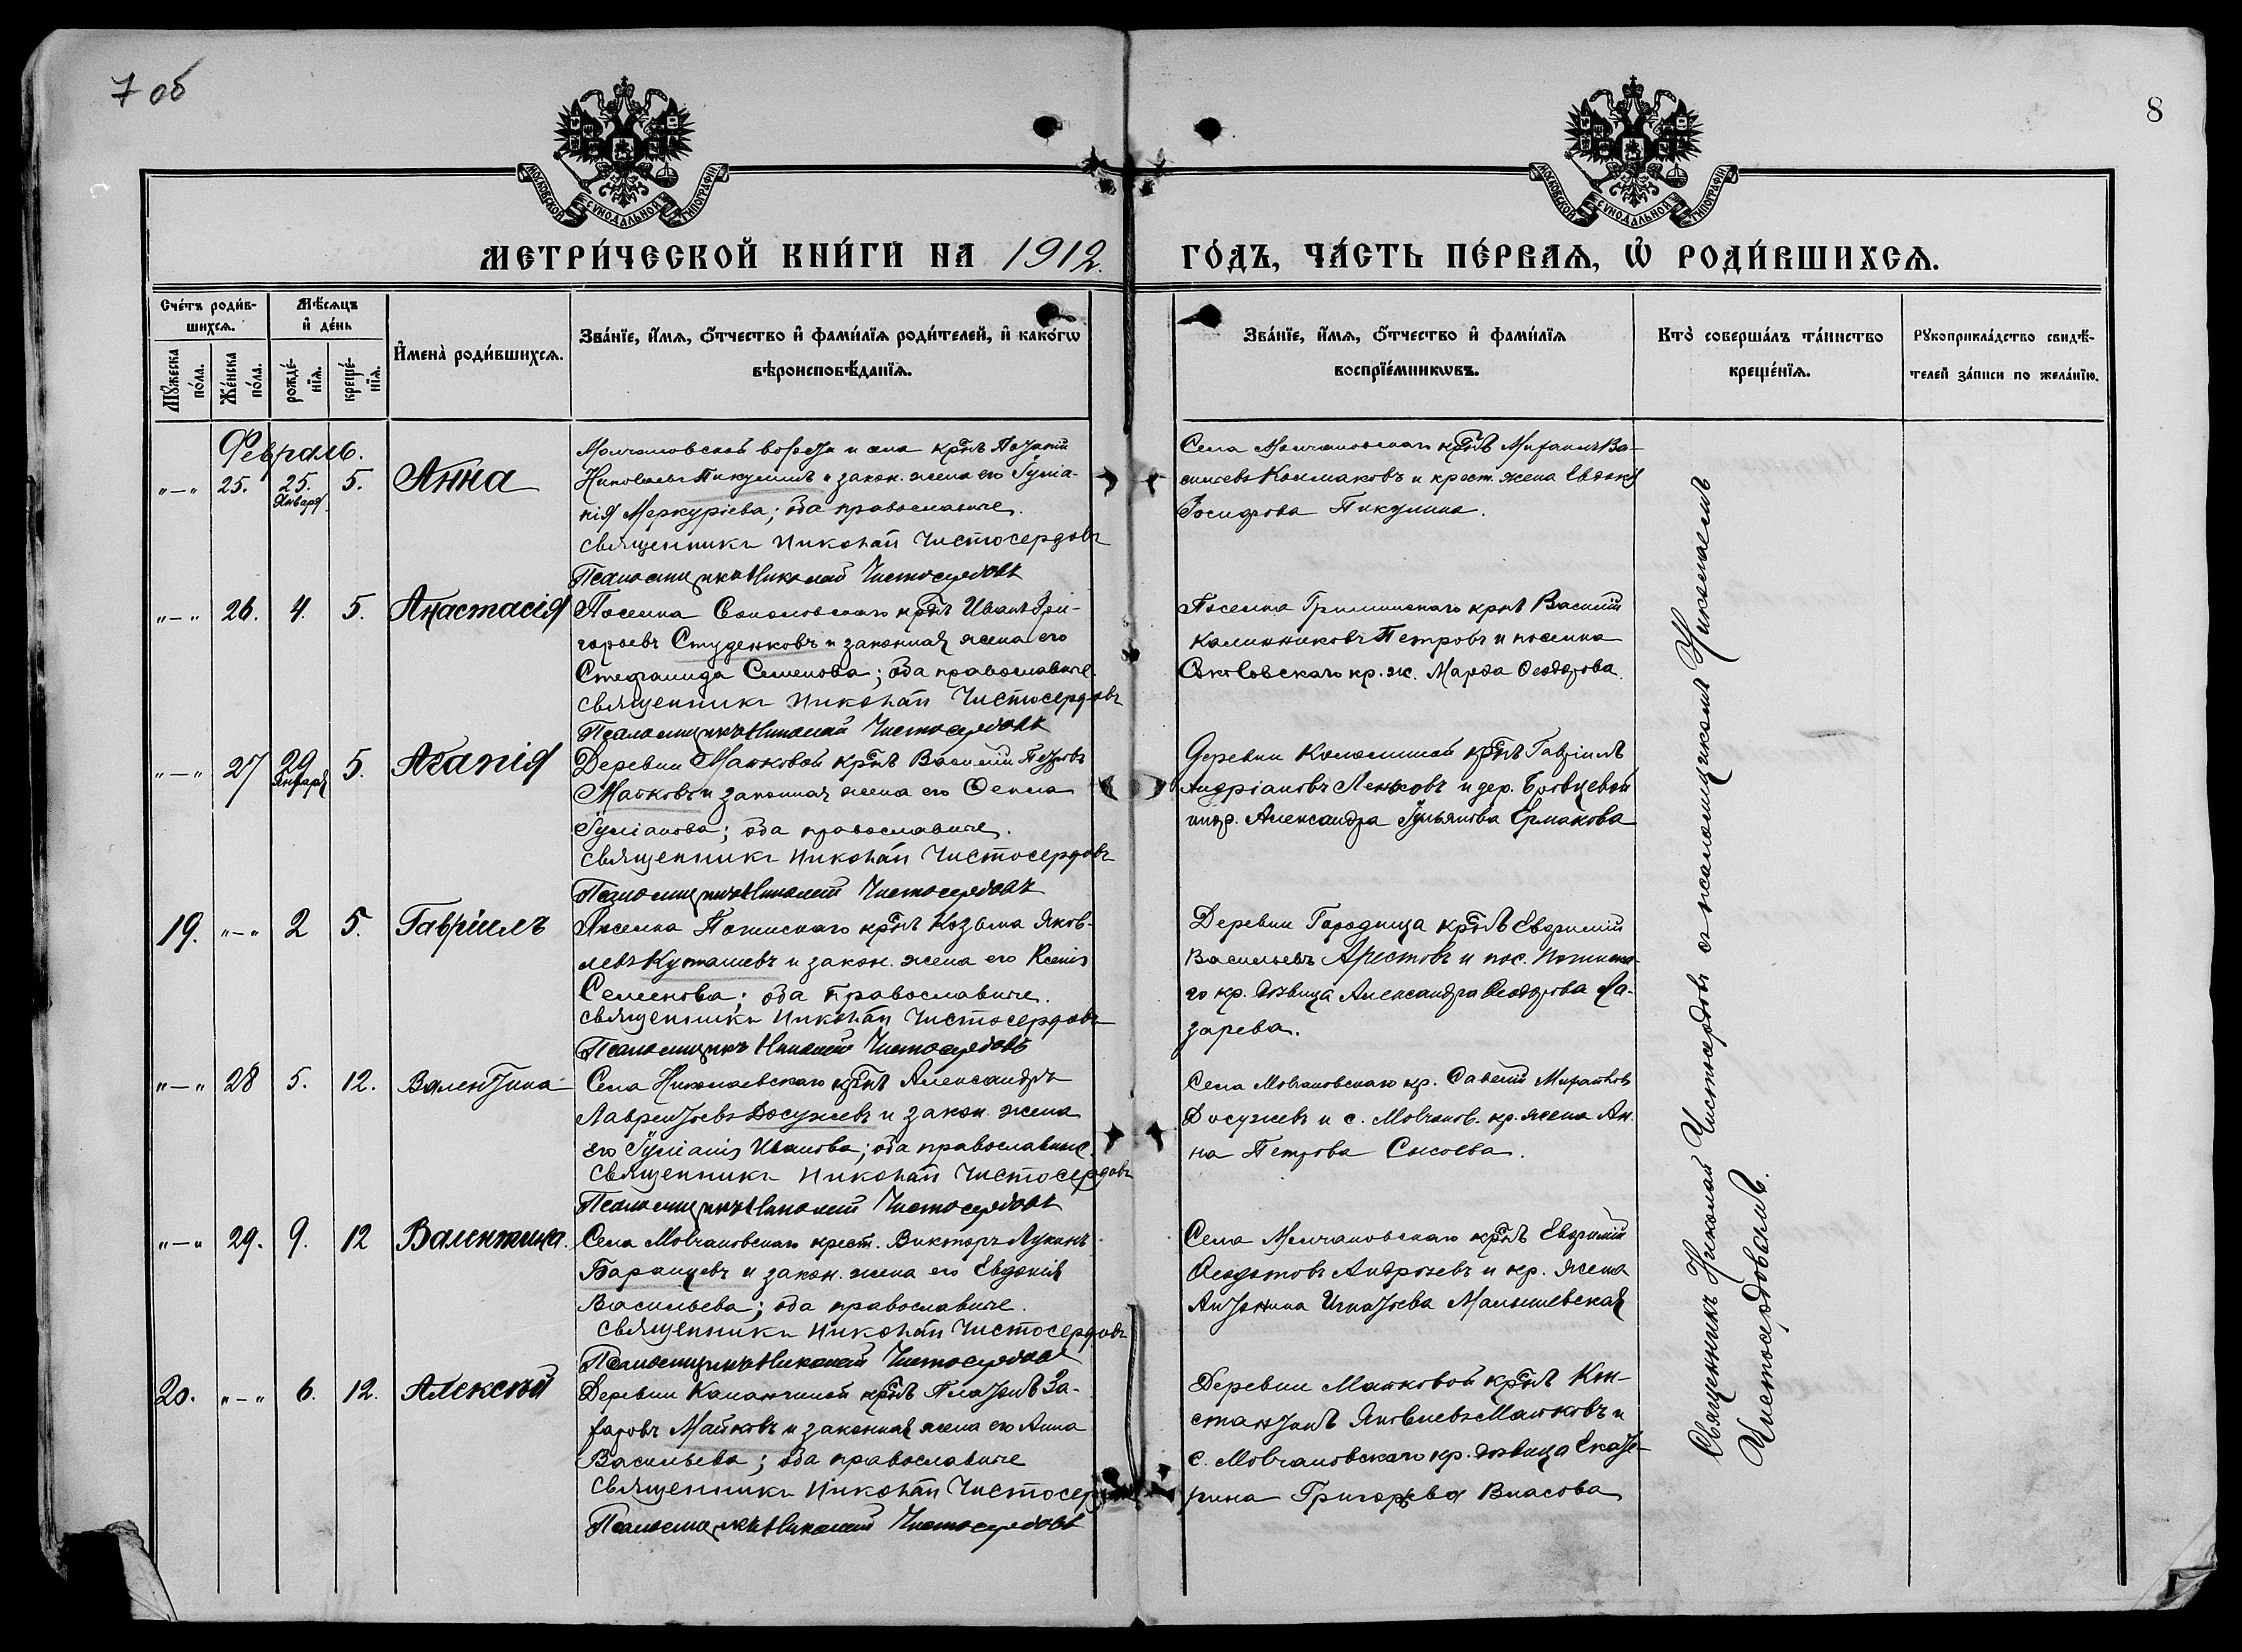 7 об
8
МОСКОВСКОЙ СУНОДАЛЬНОЙ ТИПОГРАФІИ
МОСКОВСКОЙ СУНОДАЛЬНОЙ ТИПОГРАФІИ
МЕТРИ́ЧЕСКОЙ КНИ́ГИ НА 1912. ГО́ДЪ, ЧА́СТЬ ПЕ́РВАѦ, Ѡ҆ РОДИ́ВШИХСѦ.
Сче́тъ роди́в-
шихсѧ.
Мꙋ́жеска по́ла.
Же́нска по́ла.
Мѣ́сѧцъ
и҆ де́нь
рожде́-
нїѧ.
креще́-
нїѧ.
И҆мена̀ роди́вшихсѧ.
Зва́нїе, и҆́мѧ, ѻ҆́тчество и҆ фами́лїѧ роди́телей, и҆ како́гѡ
вѣроисповѣ́данїѧ.
Зва́нїе, и҆́мѧ, ѻ҆́тчество и҆ фами́лїѧ
воспрїе́мникѡвъ.
Кто̀ соверша́лъ та́инство
креще́нїѧ.
Рꙋкоприкла́дство свидѣ́-
телей за́писи по жела́нїю.
Февраль.
"—" 25. 25. Января 5. Анна
Молчановской волости и села крнъ
Пикулинъ и закон. жена его Іуліа-
нія Меркуріева; оба православные.
священникъ Николай Чистосердовъ
Псаломщикъ Николай Чистосердовъ
Села Молчановскаго крнъ Михаилъ Ва-
сильевъ Колмаковъ и крест. жена Евдокія
Іосифова Пикулина.
"—" 26. 4. 5. Анастасія
Поселка Соколовскаго крнъ Иванъ Гри-
горьевъ Студенковъ и законная жена его
Стефанида Семенова; оба православные.
священникъ Николай Чистосердовъ
Псаломщикъ Николай Чистосердовъ
Поселка Гришинскаго крнъ Василій
Калинниковъ Петровъ и поселка
кр. ж. Марфа Феодорова.
"—" 27 29 Января 5. Агапія
Деревни Майковой крнъ Василій Петровъ
Майковъ и законная жена его Фекла
Іуліанова; оба православные.
священникъ Николай Чистосердовъ
Псаломщикъ Николай Чистосердовъ
Деревни Коломиной крнъ Гавріилъ
Андріановъ и дер.
Александра Іульянова Ермакова
19. "—" 2 5. Гавріилъ
Поселка крнъ Козьма Яков-
левъ Кусташевъ и закон. жена его Ксенія
Семенова; оба православные.
священникъ Николай Чистосердовъ
Псаломщикъ Николай Чистосердовъ
Деревни Городища крнъ Евфимій
Васильевъ Арестовъ и пос.
го кр. дѣвица Александра Феодорова Ла-
зарева.
"—" 28 5. 12. Валентина
Села Николаевскаго крнъ Александръ
Лаврентьевъ Досужевъ и закон. жена
его Іуліанія Иванова; оба православные.
священникъ Николай Чистосердовъ
Псаломщикъ Николай Чистосердовъ
Села Молчановскаго кр. Савелій
Досужевъ и с. Молчанов. кр. жена Ан-
на Петрова Сысоева.
"—" 29. 9. 12 Валентина.
Села Молчановскаго крест. Викторъ Лукинъ
Баранцевъ и закон. жена его Евдокія
Васильева; оба православные.
священникъ Николай Чистосердовъ
Псаломщикъ Николай Чистосердовъ
Села Молчановскаго крнъ Евфимій
Феодотовъ Андреевъ и кр. жена
Антонина Игнатьева Малышевская
20. "—" 6. 12. Алексѣй
Деревни крнъ Платонъ За-
харовъ Майковъ и законная жена его Анна
Васильева; оба православные
священникъ Николай Чистосердовъ
Псаломщикъ Николай Чистосердовъ
Деревни Майковой крнъ Кон-
стантинъ Яковлевъ Майковъ и
с. Молчановскаго кр. дѣвица Екате-
рина Григорьева Власова
Священникъ Николай Чистосердовъ съ псаломщикомъ Николаемъ
Чистосердовымъ.